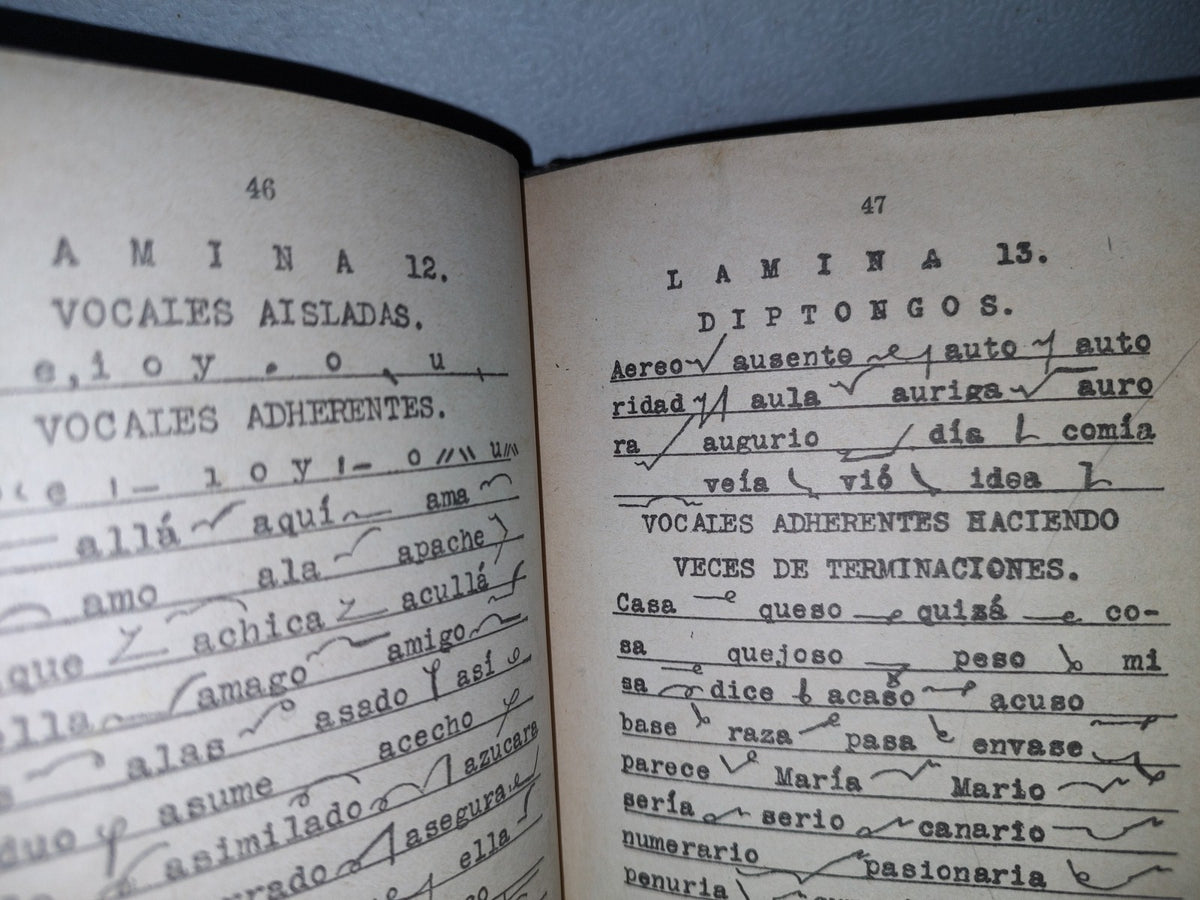 46
A M I N A 12.
VOCALES AISLADAS.
e,i o y . o u
VOCALES ADHERENTES.
e i o y o u
allá aquí ama
amo ala apache
que achica acullá
ella amago amigo
alas asado así
duo asume acecho
asimilado azúcara
asegura
ella
47
L A M I N A 13.
D I P T O N G O S.
Aereo ausente auto auto
ridad aula auriga auro
ra augurio día comía
veía vió idea
VOCALES ADHERENTES HACIENDO
VECES DE TERMINACIONES.
Casa queso quizá co-
sa quejoso peso mi
sa dice acaso acuso
base raza pasa envase
parece María Mario
sería serio canario
numerario pasionaria
penuria